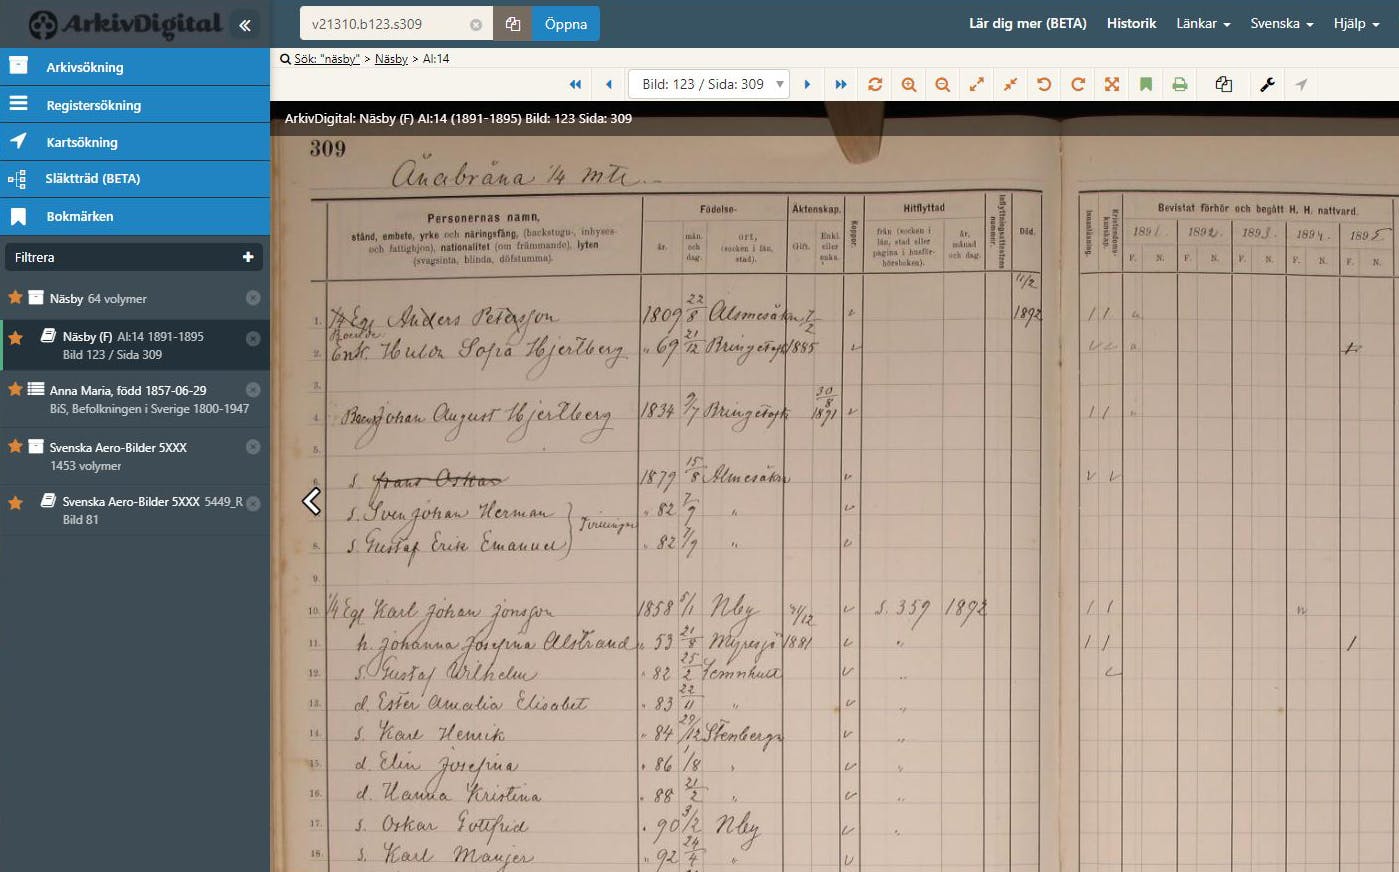 ArkivDigital
«
v21310.b123.s309
Öppna
Lär dig mer (BETA)
Historik
Länkar
Svenska
Hjälp
Arkivsökning
Registersökning
Kartsökning
Släktträd (BETA)
Bokmärken
Filtrera +
Näsby 64 volymer
Näsby (F) AI:14 1891-1895
Bild 123 / Sida 309
Anna Maria, född 1857-06-29
BiS, Befolkningen i Sverige 1800-1947
Svenska Aero-Bilder 5XXX
1453 volymer
Svenska Aero-Bilder 5XXX 5449_R
Bild 81
Sök: "näsby" > Näsby > AI:14
Bild: 123 / Sida: 309
ArkivDigital: Näsby (F) AI:14 (1891-1895) Bild: 123 Sida: 309
309
Änabråna 1/4 mtl.
Personernas namn,
stånd, embete, yrke och näringsfång, (backstugu-, inhyses-
och fattighjon), nationalitet (om främmande), lyten
(svagsinta, blinda, döfstumma).
Födelse-
år.
mån. och dag.
ort,
(socken i län, stad).
Äktenskap.
Gift.
Enkl. eller enka.
Koppor.
Hitflyttad
från (socken i län, stad eller pagina i husförhörsboken).
år, månad och dag.
Inflyttningsattestens nummer.
Död.
Innanläsning.
Kristendomskunskap.
Bevistat förhör och begått H. H. nattvard.
1891. 1892. 1893. 1894. 1895.
F. N. F. N. F. N. F. N. F. N.
11/2
1. 1/4 Eg. Anders Petersson 1809 22/8 Almesåkra 7/2 1892
2. Enk. Hulda Sofia Hjertberg " 69 21/12 Bringetofta 1885
3.
30/8
4. Johan August Hjertberg 1834 9/7 Bringetofta 1891
5.
6. s. Frans Oskar 1879 15/8 Almesåkra
s. Sven Johan Herman " 82 7/9 "
Tvillingar
8. s. Gustaf Erik Emanuel " 82 7/9 "
9.
10. 1/4 Eg. Karl Johan Jonsson 1858 5/1 Nby S. 359 1892
11. h. Johanna Josefina Alstrand " 53 21/8 Myresjö 1881 "
12. s. Gustaf Wilhelm " 82 25/2 Lemnhult "
13. d. Ester Amalia Elisabet " 83 22/11 " "
14. s. Karl Henrik " 84 29/12 Stenberga "
15. d. Elin Josefina " 86 1/8 " "
16. d. Hanna Kristina " 88 21/2 " "
17. s. Oskar Gottfrid " 90 3/2 Nby "
18. s. Karl Manfer " 92 24/4 "